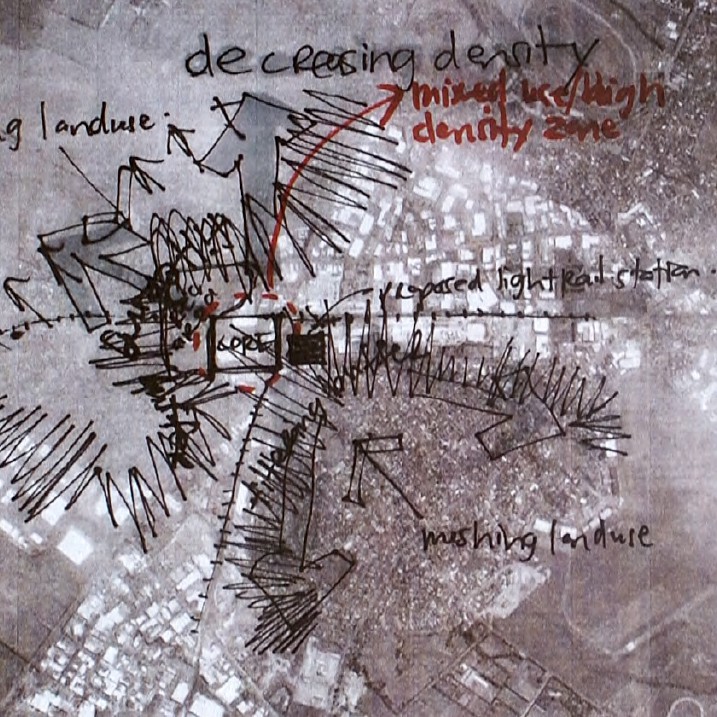 decreasing density
mixed use/high
density zone
g landuse.
proposed light rail station.
CORE
buffer
meshing landuse